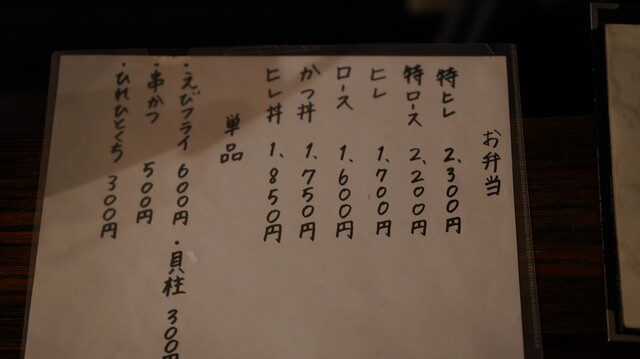 お弁当
特ヒレ 2,300円
特ロース 2,200円
ヒレ 1,700円
ロース 1,600円
かつ丼 1,750円
ヒレ丼 1,850円
単品
・えびフライ 600円 ・貝柱 300円
・串かつ 500円
・ひれひとくち 300円